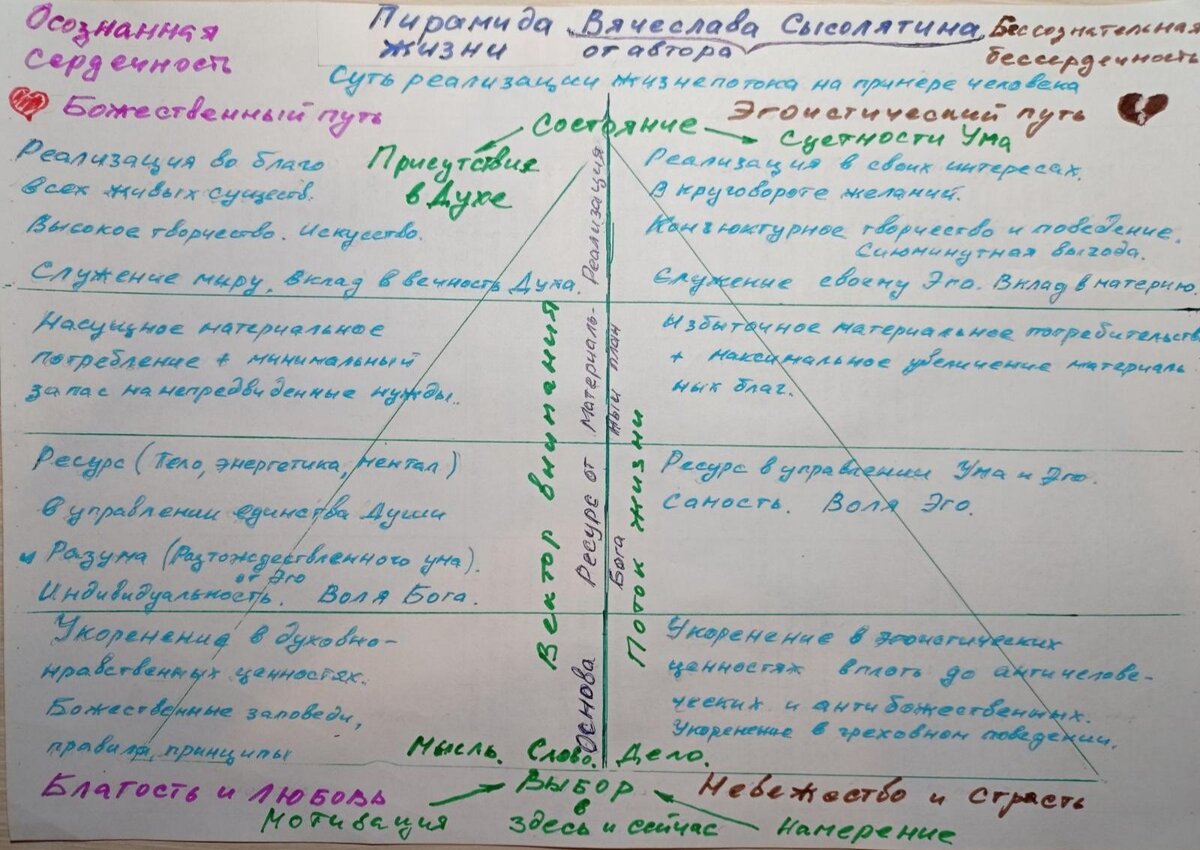 Осознанная
Сердечность
Пирамида Вячеслава Сысолятина
жизни от автора
Бессознательная
бессердечность
Суть реализации жизнепотока на примере человека
Божественный путь
Эгоистический путь
Состояние
Присутствия
в Духе
Суетности Ума
Реализация во благо
всех живых существ.
Высокое творчество. Искусство.
Служение миру, вклад в вечность Духа.
Реализация в своих интересах.
В круговороте желаний.
Конъюктурное творчество и поведение.
Сиюминутная выгода.
Служение своему Эго. Вклад в материю.
Насущное материальное
потребление + минимальный
запас на непредвиденные нужды.
Избыточное материальное потребительств
+ максимальное увеличение материаль
ных благ.
Ресурс (Тело, энергетика, ментал)
в управлении единства Души
и Разума (Разтождествленного ума).
от Эго
Индивидуальность. Воля Бога.
Ресурс в управлении Ума и Эго.
Самость. Воля Эго.
Укоренение в духовно-
нравственных ценностях.
Божественные заповеди,
правила, принципы
Укоренение в эгоистических
ценностях вплоть до античелове-
ческих и антибожественных.
Укоренение в греховном поведении.
Вектор внимания
Основа Ресурс от Материаль- Реализация
Бога ный план
Поток жизни
Мысль. Слово. Дело.
Благость и любовь
Выбор
в
Здесь и сейчас
Невежество и Страсть
Мотивация
Намерение